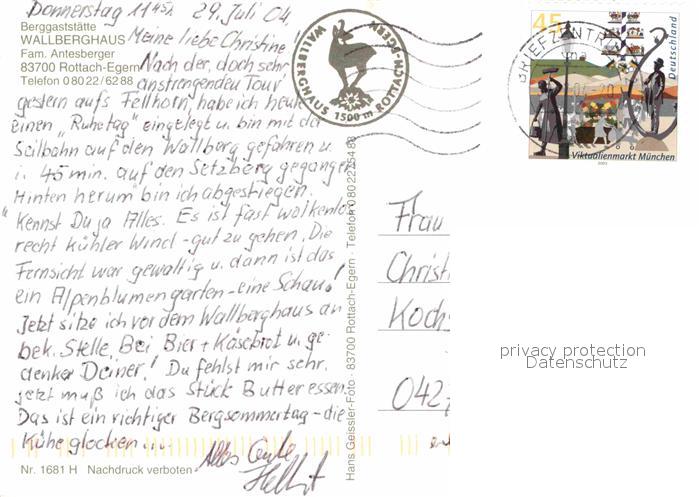 Donnerstag 11 45h 29. Juli 04.
Berggaststätte
WALLBERGHAUS
Fam. Antesberger
83700 Rottach-Egern
Telefon 0 80 22/62 88
Meine liebe Christine
Nach der, doch sehr
anstrengenden Tour,
gestern aufs Fellhorn, habe ich heute
einen „Ruhetag" eingelegt u. bin mit der
Seilbahn auf den Wallberg gefahren u.
i. 45 min. auf den Setzberg gegangen.
Hinten herum" bin ich abgestiegen.
Kennst Du ja Alles. Es ist fast wolkenlos
recht kühler Wind - gut zu gehen. Die
Fernsicht war gewaltig u. dann ist das
ein Alpenblumengarten - eine Schau!
Jetzt sitze ich vor dem Wallberghaus an
bek. Stelle, Bei Bier + Käsebrot u. ge-
denke Deiner! Du fehlst mir sehr.
jetzt muß ich das Stück Butter essen.
Das ist ein richtiger Bergsommertag - die
Kühe glocken ....
Alles Gute
Nr. 1681 H Nachdruck verboten
Hans Geissler-Foto · 83700 Rottach-Egern · Telefon 0 80 22/5 48 8
WALLBERGHAUS 1500 m ROTTACH-EGERN
BRIEFZENTRUM
45
Deutschland
Viktualienmarkt München
2003
Frau
Christi
Koch
042
privacy protection
Datenschutz